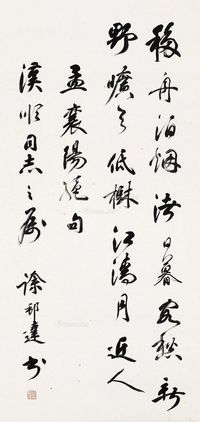 移舟泊烟渚日暮客愁新
野曠天低樹江清月近人
孟襄陽絕句
漢順同志之屬 徐邦達書